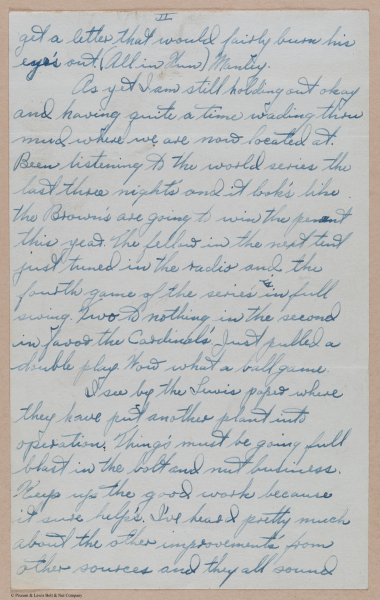 II
get a letter that would fairly burn his
eye's out. (All in Fun) Manley.
As yet I am still holding out okay
and having quite a time wading thru
mud where we are now located at.
Been listening to the world series the
last three nights and it look's like
the Brown's are going to win the penant
this year. The fellow in the next tent
just tuned in the radio and the
fourth game of the series is in full
swing. Two to nothing in the second
in favor the Cardinals. Just pulled a
double play. Wow what a ball game.
I see by the Lewis paper where
they have put another plant into
operation. Thing's must be going full
blast in the bolt and nut business.
Keep up the good work because
it sure help's. I've heard pretty much
about the other improvement's from
other sources and they all sound
© Pawnee & Lewis Bolt & Nut Company